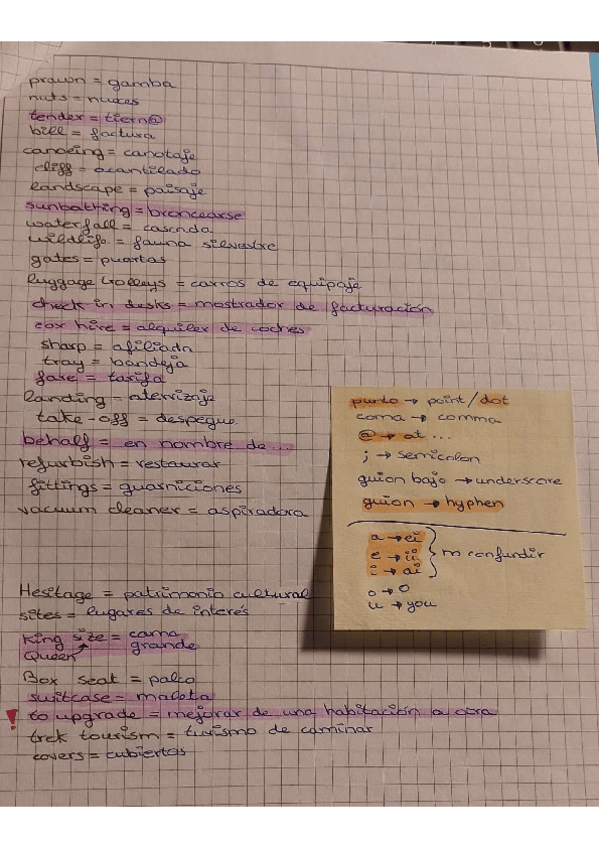 prawn = gamba
nuts = nueces
tender = tiern@
bill = factura
canoeing = canotaje
cliff = acantilado
landscape = paisaje
sunbathing = broncearse
waterfall = cascada
wildlife = fauna silvestre
gates = puertas
luggage trolleys = carros de equipaje
check in desks = mostrador de facturación
car hire = alquiler de coches
sharp = afilado
tray = bandeja
fare = tarifa
landing = aterrizaje
take-off = despegue.
behalf = en nombre de...
refurbish = restaurar
fittings = guarniciones
vacuum cleaner = aspiradora
Heritage = patrimonio cultural
sites = lugares de interés
King size = cama grande
Queen
Box seat = palco
suitcase = maleta
! to upgrade = mejorar de una habitación a otra
trek tourism = turismo de caminar
covers = cubiertas
punto → point/dot
coma → comma
@ → at ...
; → semicolon
guion bajo → underscore
guion → hyphen
a → ei
e → ii
i → ai
no confundir
o → o
u → you